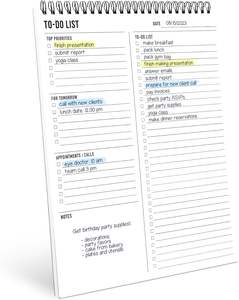 TO-DO LIST
DATE 09/15/2023
TOP PRIORITIES
finish presentation
submit report
yoga class
FOR TOMORROW
call with new clients
lunch date: 12:00 pm
APPOINTMENTS / CALLS
eye doctor: 10 am
team call 3 pm
NOTES
Get birthday party supplies:
- decorations
- party favors
- cake from bakery
- plates and utensils
TO-DO LIST
make breakfast
pack lunch
pack gym bag
finish making presentation
answer emails
submit report
prepare for new client call
pay invoices
check party RSVPs
get party supplies
yoga class
make dinner reservations